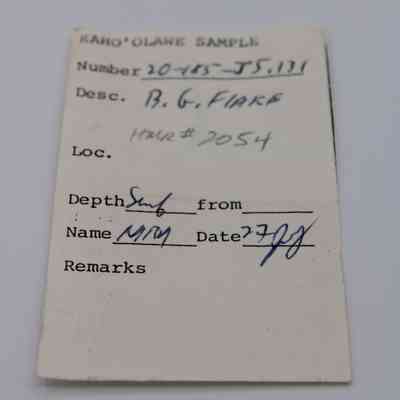 KAHO'OLAWE SAMPLE
Number 20-105-J5.131
Desc. B.G. FLAKE
HMR# 2054
Loc.
Depth Surf from
Name MRM Date 27
Remarks